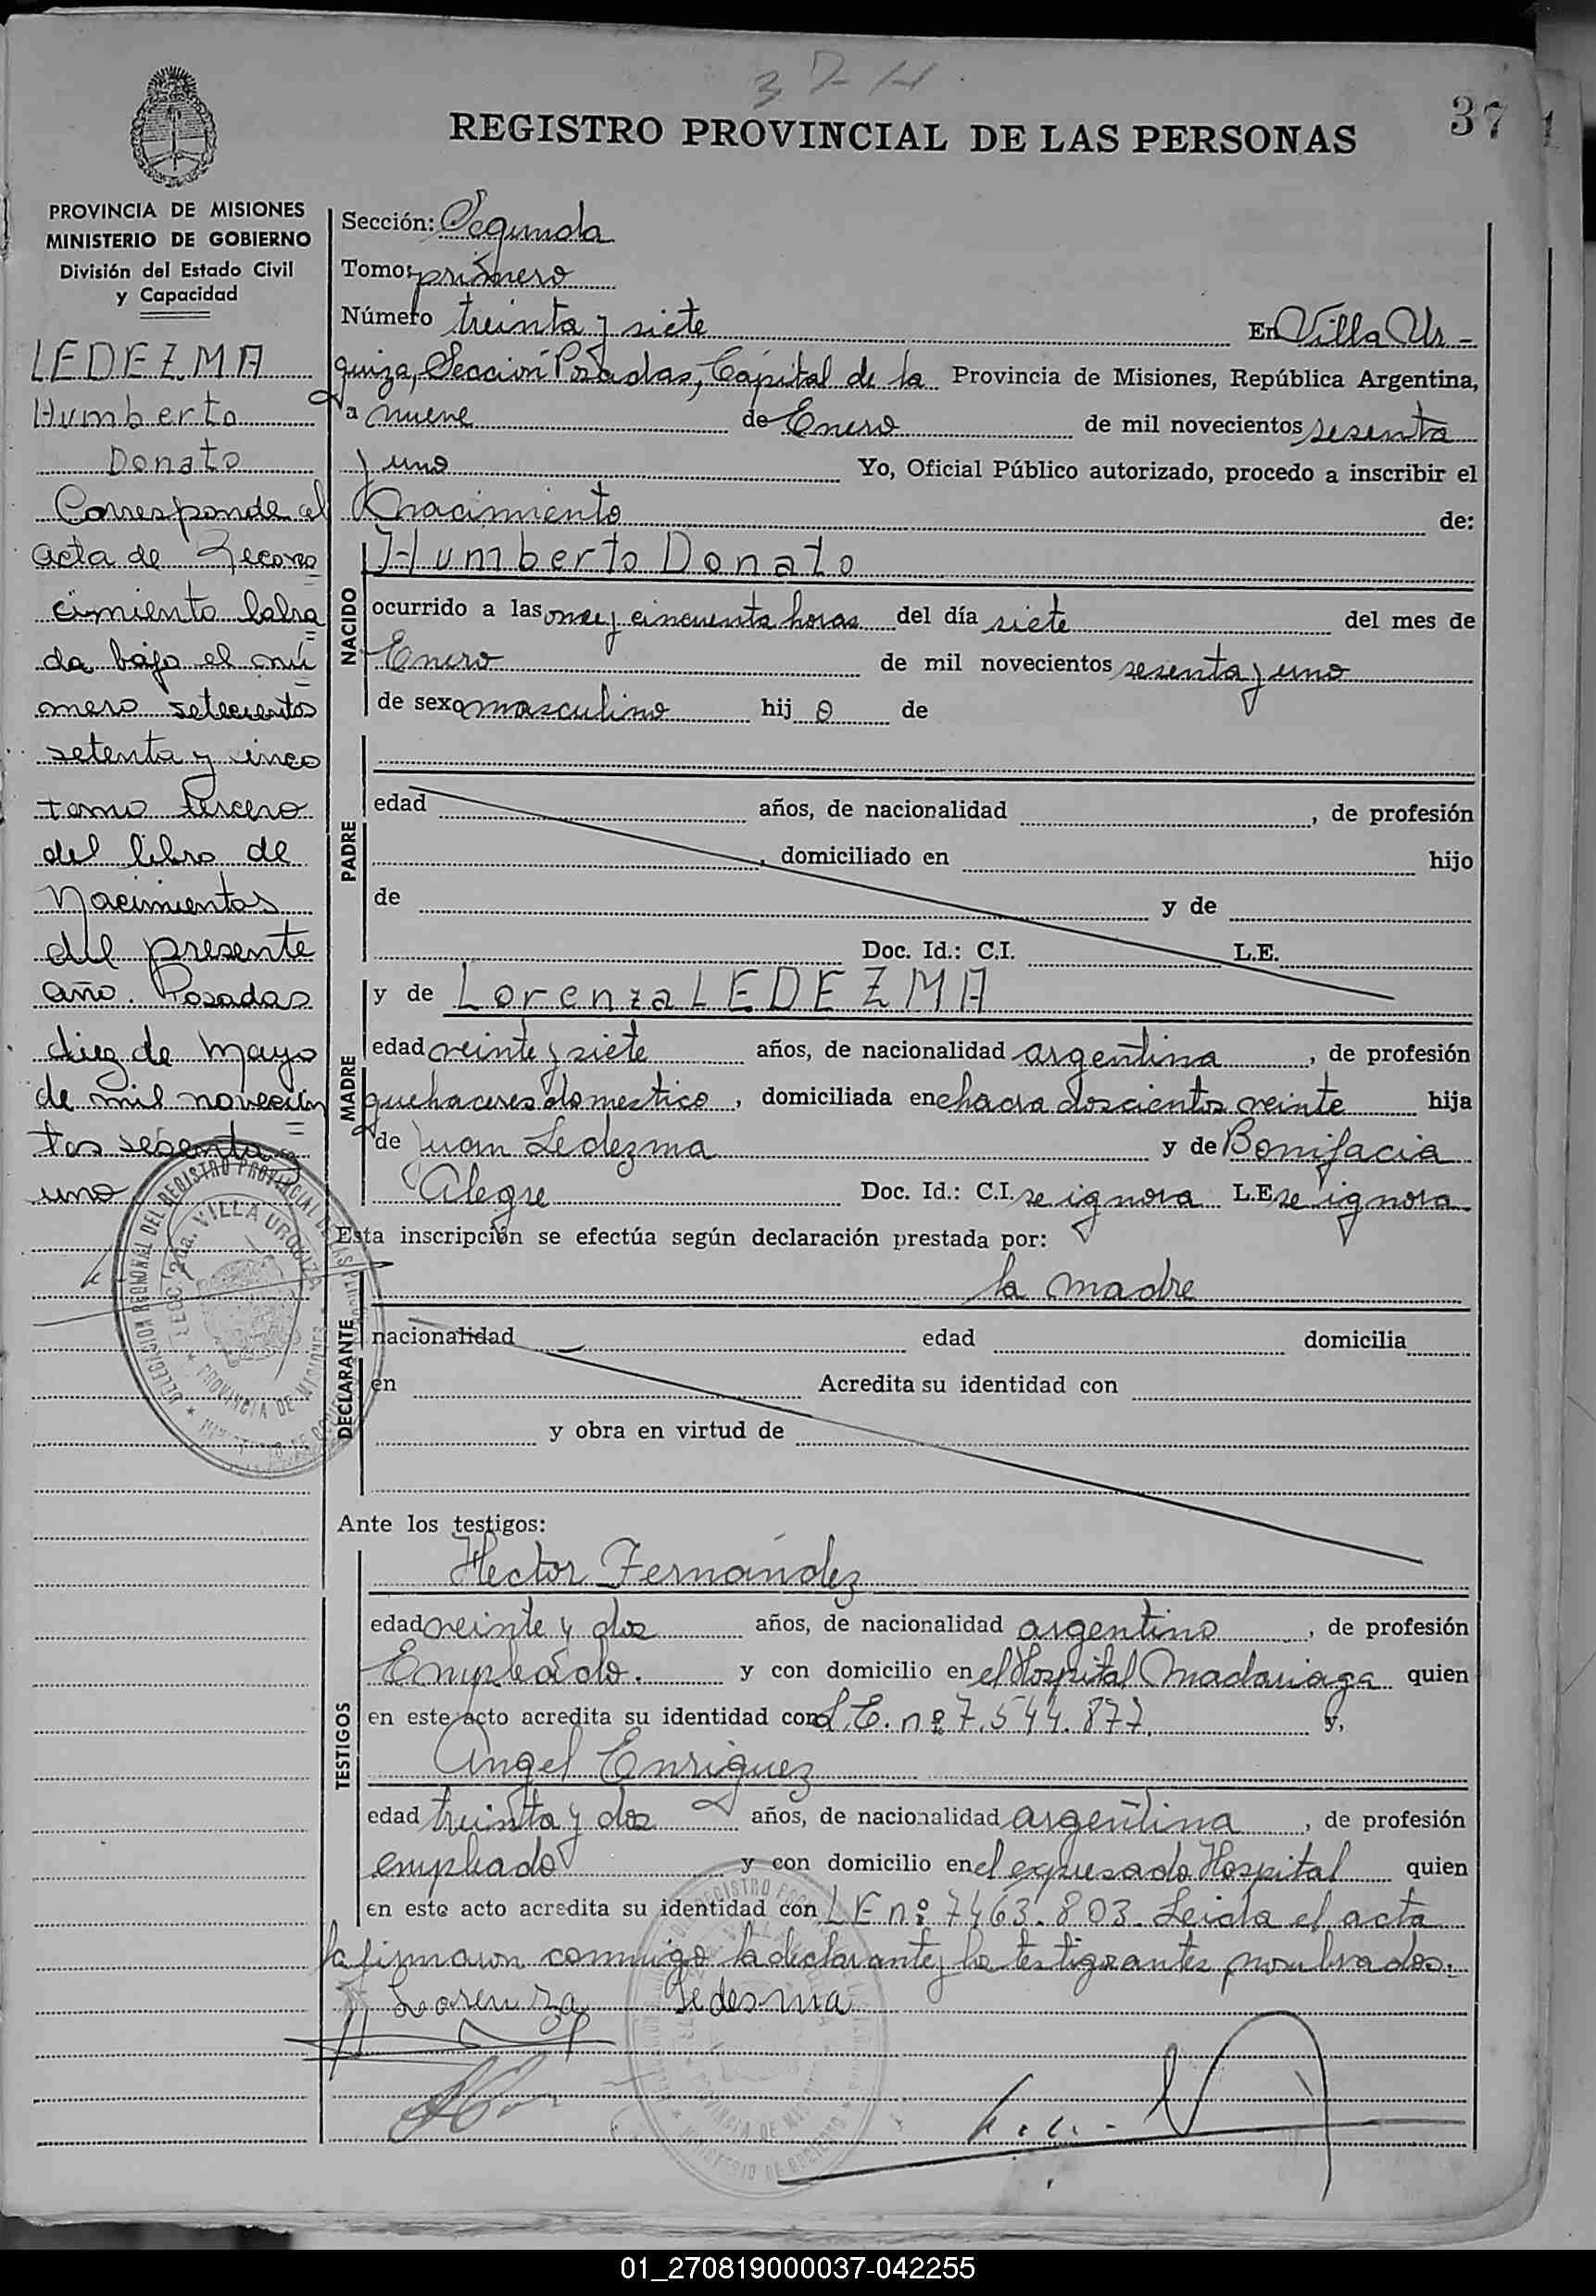 37-H.
REGISTRO PROVINCIAL DE LAS PERSONAS
37
PROVINCIA DE MISIONES
MINISTERIO DE GOBIERNO
División del Estado Civil
y Capacidad
LEDEZMA
Humberto
Donato
Corresponde al
acta de Recono
cimiento labra
da bajo el nú
mero setecientos
setenta y cinco
tomo tercero
del libro de
Nacimientos
del presente
año. Posadas
diez de Mayo
de mil novecien
tos sesenta y
uno
Sección: Segunda
Tomo: primero
Número treinta y siete En Villa Ur-
quiza, Sección Posadas, Capital de la Provincia de Misiones, República Argentina,
a nueve de Enero de mil novecientos sesenta
y uno Yo, Oficial Público autorizado, procedo a inscribir el
nacimiento de:
NACIDO
Humberto Donato
ocurrido a las once y cincuenta horas del día siete del mes de
Enero de mil novecientos sesenta y uno
de sexo masculino hij o de
PADRE
edad años, de nacionalidad , de profesión
, domiciliado en hijo
de y de
Doc. Id.: C.I. L.E.
MADRE
y de Lorenza LEDEZMA
edad veinte y siete años, de nacionalidad argentina, de profesión
quehaceres domestico, domiciliada en chacra doscientos veinte hija
de Juan Ledezma y de Bonifacia
Alegre Doc. Id.: C.I. se ignora L.E. se ignora
Esta inscripción se efectúa según declaración prestada por:
la madre
DECLARANTE
nacionalidad edad domicilia
en Acredita su identidad con
y obra en virtud de
Ante los testigos:
TESTIGOS
Hector Fernández
edad veinte y dos años, de nacionalidad argentino, de profesión
Empleado. y con domicilio en el Hospital Madariaga quien
en este acto acredita su identidad con L.E. nº 7.544.877. y,
Angel Enriquez
edad treinta y dos años, de nacionalidad argentina, de profesión
empleado y con domicilio en el expresado Hospital quien
en este acto acredita su identidad con LE nº 7463.803. Leida el acta
la firmaron conmigo la declarante y los testigoantes nombrados.
Lorenza Ledesma
DELEGACION REGIONAL DEL REGISTRO PROVINCIAL DE LAS PERSONAS
SECC. 2da. VILLA URQUIZA
PROVINCIA DE MISIONES
MINISTERIO DE GOBIERNO
01_270819000037-042255